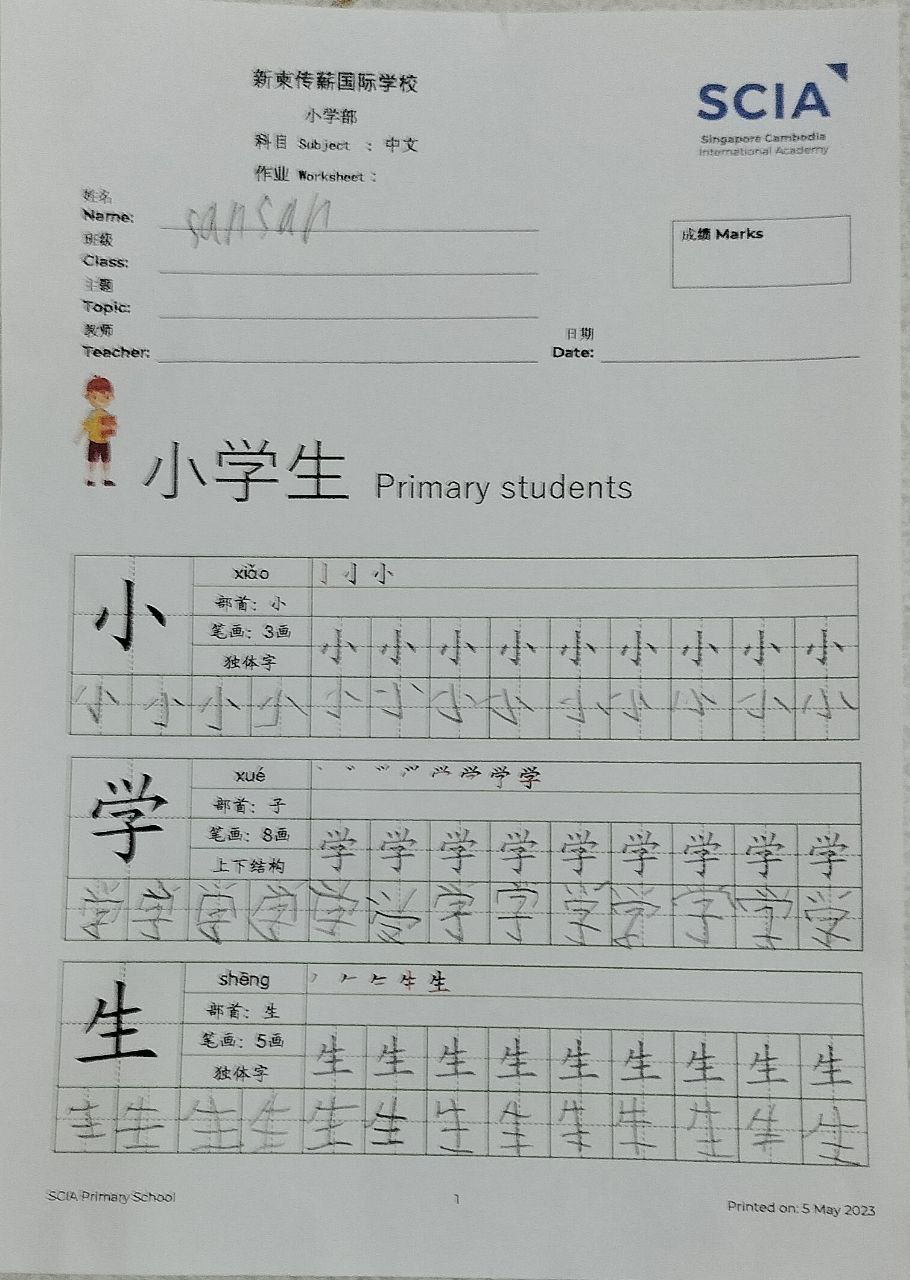 新柬传薪国际学校
小学部
科目 Subject : 中文
作业 Worksheet :
SCIA
Singapore Cambodia
International Academy
姓名
Name: sansan
班级
Class:
主题
Topic:
教师
Teacher:
成绩 Marks
日期
Date:
小学生 Primary students
小
xiǎo
部首: 小
笔画: 3画
独体字
小 小 小 小 小 小 小 小 小
小 小 小 小 小 小 小 小 小 小 小 小 小
学
xué
部首: 子
笔画: 8画
上下结构
学 学 学 学 学 学 学 学 学
学 学 学 学 学 学 学 学 学 学 学 学 学
生
shēng
部首: 生
笔画: 5画
独体字
生 生 生 生 生 生 生 生 生
生 生 生 生 生 生 生 生 生 生 生 生 生
SCIA Primary School
1
Printed on: 5 May 2023